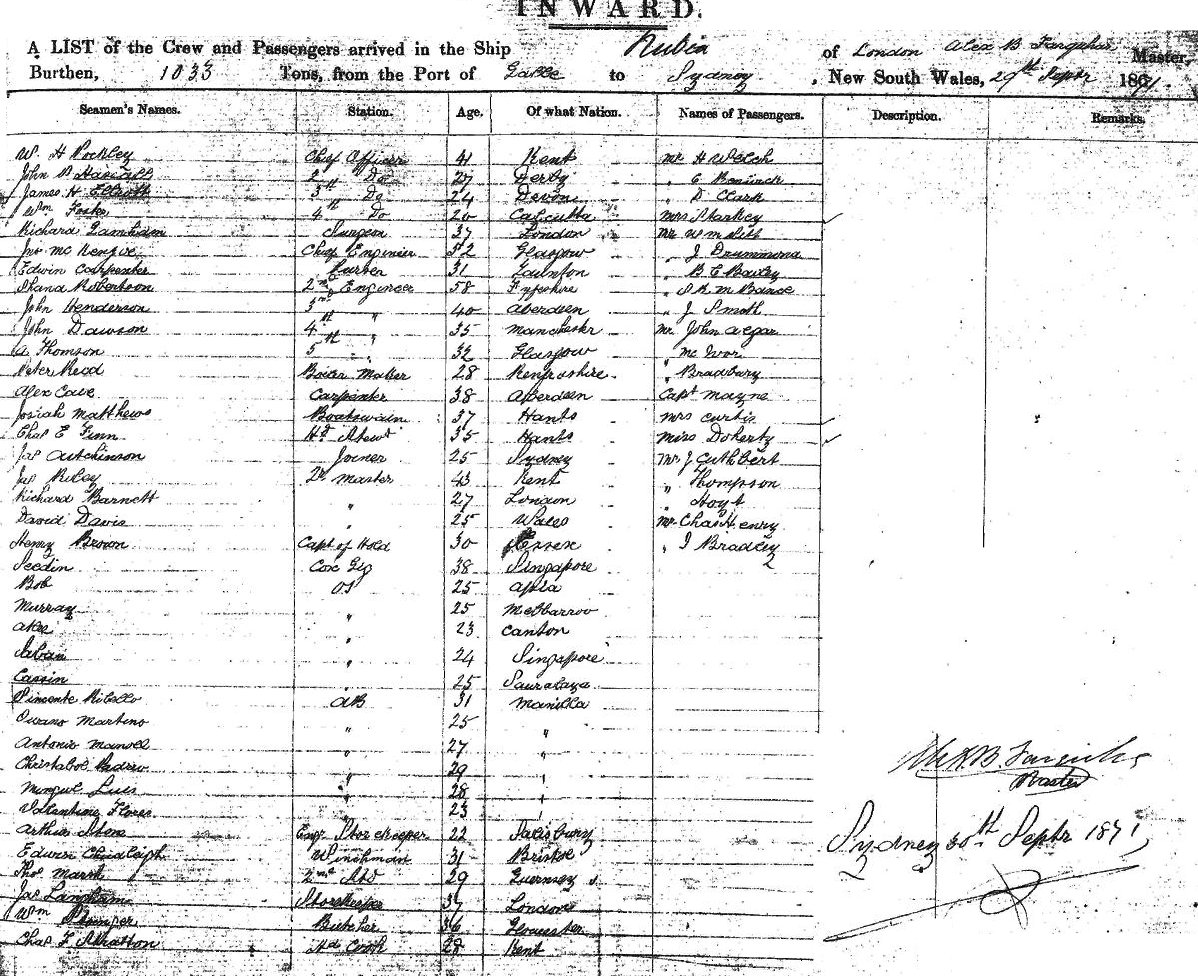 INWARD.
A LIST of the Crew and Passengers arrived in the Ship Nubia of London Alex B Farquhar Master,
Burthen, 1033 Tons, from the Port of Galle to Sydney, New South Wales, 29th Septr 1871.
Seamen's Names. Station. Age. Of what Nation. Names of Passengers. Description. Remarks.
W. H Pockley Chief Officer 41 Kent Mr H Welch
John 2nd Do 27 Derby " C
James H Elliott 3rd Do 24 Devon " D Clark
Wm 4th Do 20 Calcutta Mrs Starkey
Richard Surgeon 37 London Mr
Jno Mc Kenzie Chief Engineer 52 Glasgow " J Drummond
Edwin Carpenter Barber 31 Taunton " B C Bailey
Robertson 2nd Engineer 58 Fifeshire "
John Henderson 3rd " 40 Aberdeen " J Smith
John Dawson 4th " 35 Manchester Mr John
A Thomson 5th " 32 Glasgow " Mc Ivor
Peter Read Boiler Maker 28 Renfroshire " Bradbury
Alex Cave Carpenter 38 Aberdeen Capt Mayne
Josiah Matthews Boatswain 37 Hants Mrs Curtis
Chas E Finn Hd Stewd 35 Hants Miss Doherty
Jas Hutchinson Joiner 25 Sydney Mr J Cuthbert
Jas Riley Qr Master 43 Kent " Thompson
Richard Barnett " 27 London " Hoyt
David Davis " 25 Wales Mr Chas Henry
Henry Brown Capt of Hold 30 Essex " J Bradley
Seedin Cox Gig 38 Singapore
Bob OS 25
Murray " 25
" 23 Canton
Saban " 24 Singapore
Cassin 25 Saurabaya
Ribello AB 31 Manilla
Martino " 25 "
Antonio Manoel " 27 "
Pedro " 29 "
Luis " 28 "
Valentine Flores " 23 "
Arthur Stone Eng. Storekeeper 22 Salisbury
Edwin Chudleigh Winchman 31 Bristol
Thos Marsh 2nd Std 29 Guernsey
Jas Langham Storekeeper 37 London
Wm Butcher 36 Gloucester
Chas F Stratton Hd Cook 28 Kent
Alex B Farquhar
Master
Sydney 30th Septr 1871